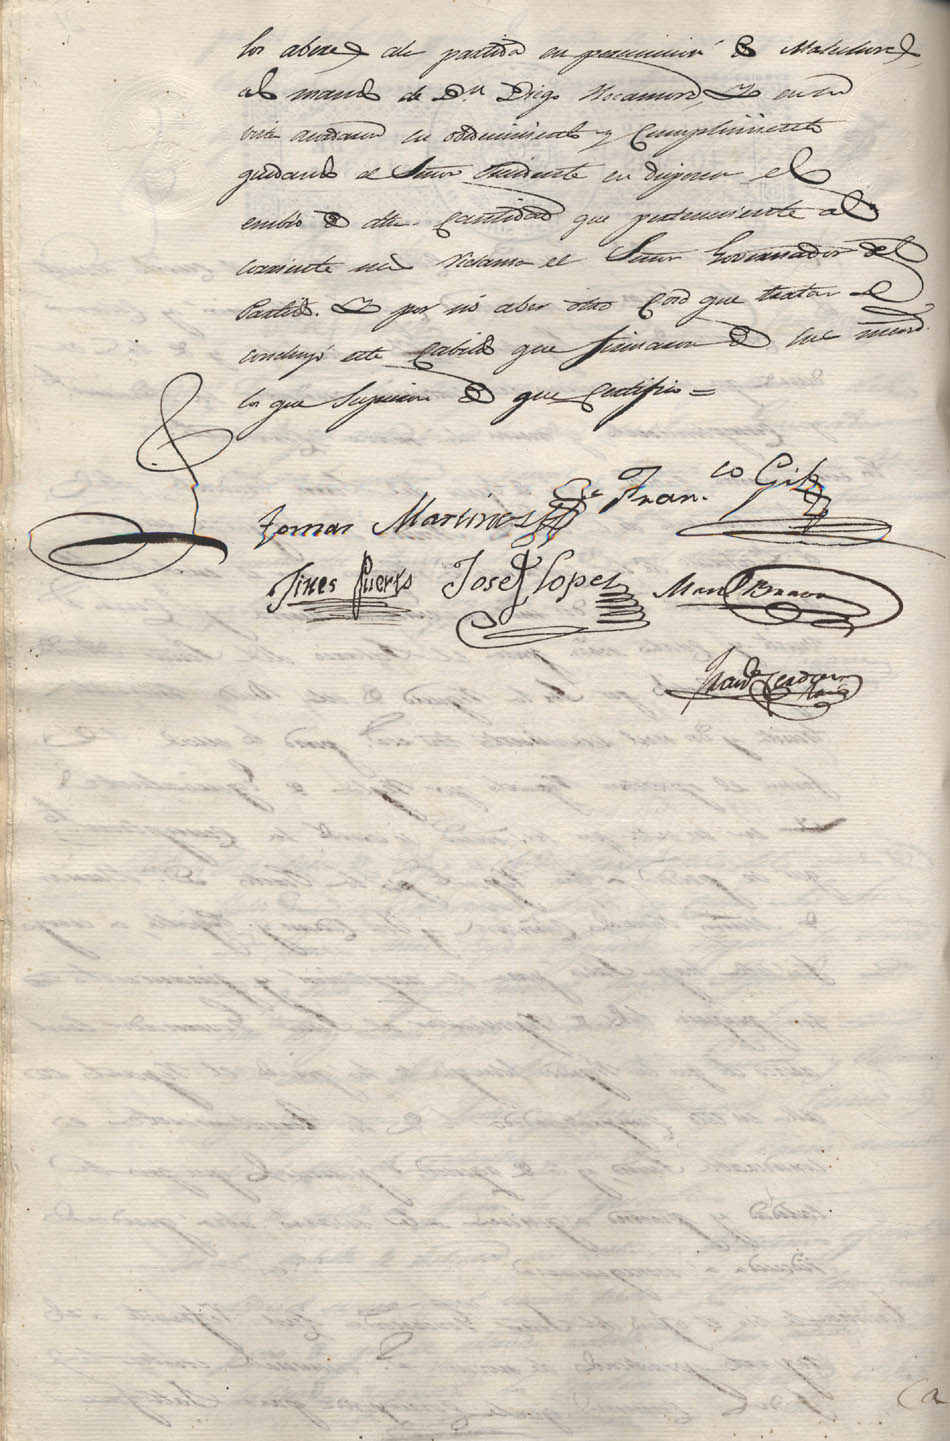 los aberes de partida en persecucion de Malechores
al mando de Dn Diego Rocamora, Y en su
vista acordaron su obedecimiento y Cumplimiento
quedando el Señor Presidente en disponer el
embio de dha Cantidad que perteneciente al
corriente mes reclama el Señor Governador del
Partido. Y por no aber otro Cosa que tratar se
concluyó este Cabildo que firmaron de sus mrds
los que Supieron de que Certifico =
Tomas Martinez Franco Gil
Jines Puerto Josef Lopez Manl Bravo